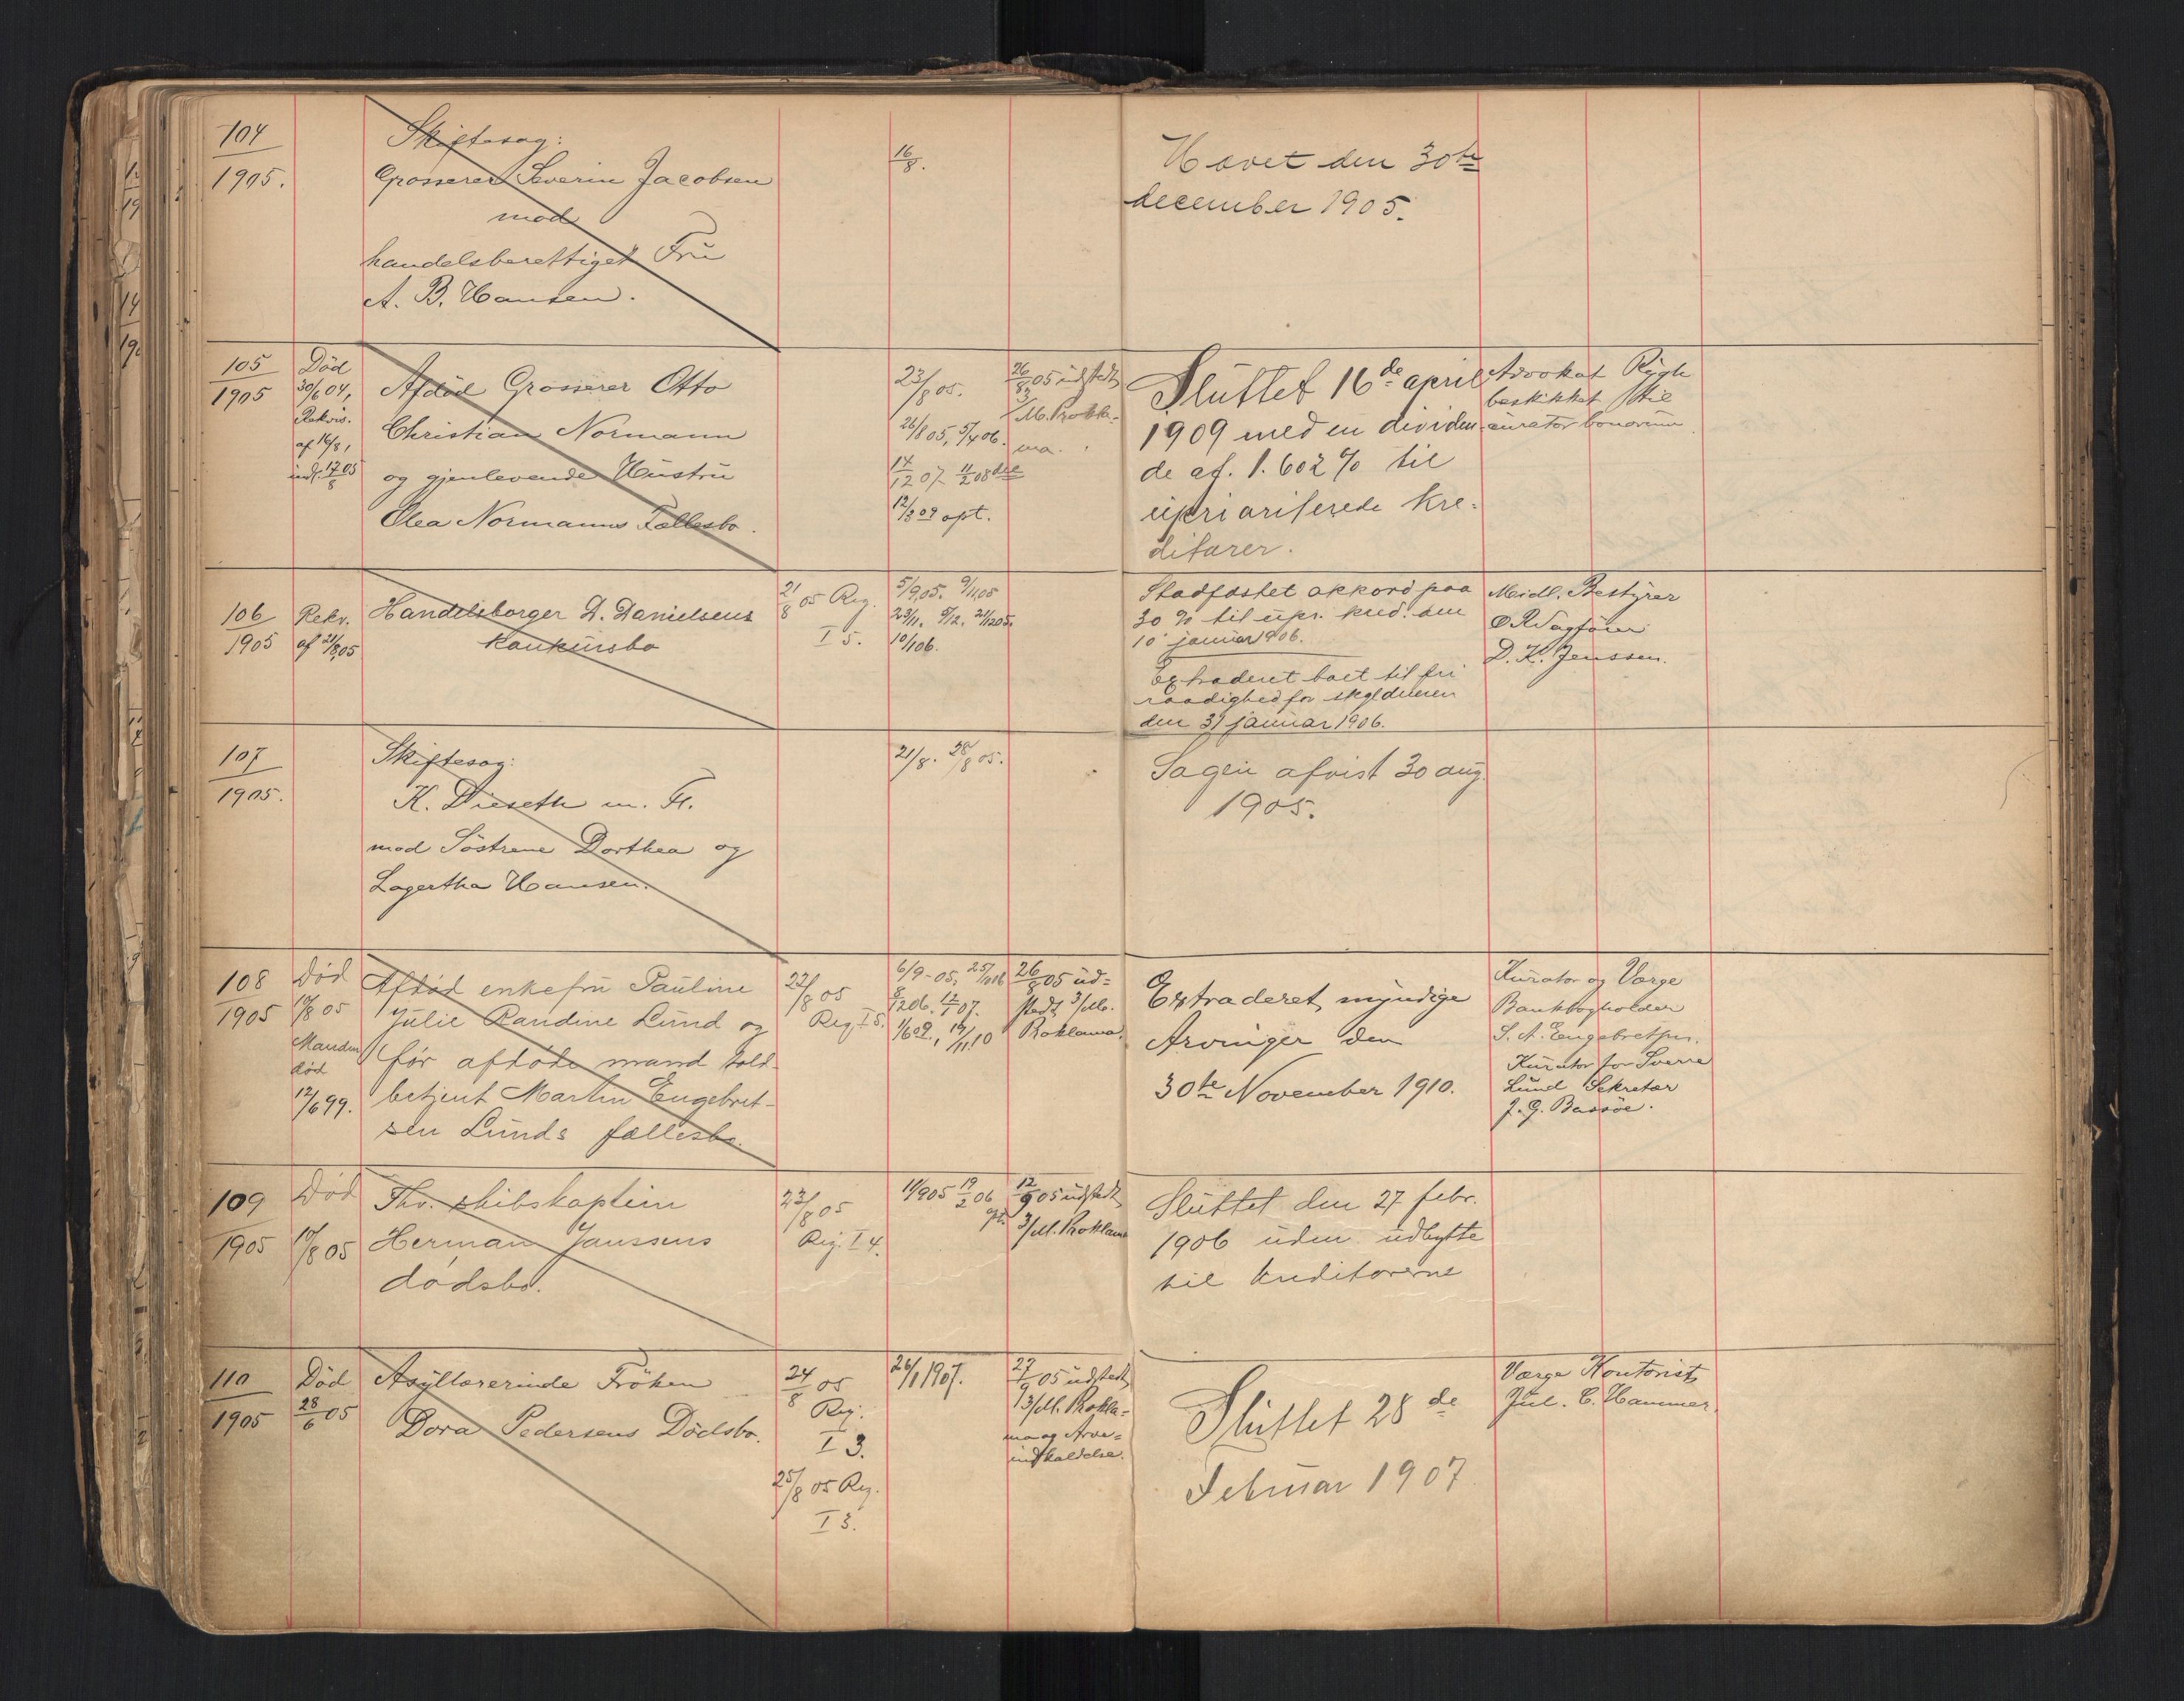 104
1905.
Skiftesag:
Grosserer Severin Jacobsen
mod
handelsberettiget Fru
A. B. Hansen.
16/8.
Hævet den 30te
december 1905.
105
1905
Død
30/6 04,
Rekvis.
af 16/8,
indk. 17/8 05
Afdød Grosserer Otto
Christian Normann
og gjenlevende Hustru
Olea Normanns Fællesbo.
23/8 05.
26/8 05, 5/4 06.
17/12 07
12/3 09 opt.
26/8 05 udstedt
3/M. Prokla-
ma.
Sluttet 16de april
1909 med en dividen-
de af. 1.602 % til
uprioriterede kre-
ditorer.
Advokat Rygh
beskikket til
curator bonorum
106
1905
Rekv.
af 21/8 05
Handelsborger D. Danielsens
konkursbo
21/8 05 Reg.
I 5.
5/9 05. 9/11 05
23/11. 5/12. 21/12 05.
10/1 06.
Stadfæstet akkord paa
30 % til upr. kred. den
10 januar 1906.
Extraderet boet til fri
raadighed for skyldneren
den 31 januar 1906.
Midl. Bestyrer
D. K. Jenssen.
107
1905.
Skiftesag:
K. Dieseth m. Fl.
mod Söstrene Dorthea og
Lagertha Hansen.
21/8. 28/8 05.
Sagen afvist 30 aug.
1905.
108
1905
Død
17/8 05
Manden
død
12/6 99.
Afdød enkefru Pauline
Julie Randine Lund og
før afdøde mand told-
betjent Martin Engebret-
sen Lunds fællesbo.
22/8 05
Reg I 5.
6/9-05,
1/6 09, 19/11 10
26/8 05 ud-
stedt 3/Md.
Proklama.
Extraderet myndige
Arvinger den
30te November 1910.
Kurator og Værge
Bankbogholder
S. A. Engebretsen.
Kurator for Sverre
Lund Sekretær
J. G. Bassøe.
109
1905
Død
17/8 05
Fhv. skibskaptein
Herman Janssens
dødsbo.
23/8 05
Reg. I 4.
11/9 05 19/2 06
12/9 05 udstedt
3/Md. Proklama
Sluttet den 27 febr.
1906 uden udbytte
til kreditorerne
110
1905
Död
28/6 05
Asyllærerinde Fröken
Dora Pedersens Dödsbo.
24/8 05
Reg.
I 3.
25/8 05 Reg.
I 3.
26/1 1907.
27/9 05 udstedt
3/Md. Prokla-
ma og Arve-
indkaldelse.
Sluttet 28de
Februar 1907
Værge Kontorist
Jul. C. Hammer.